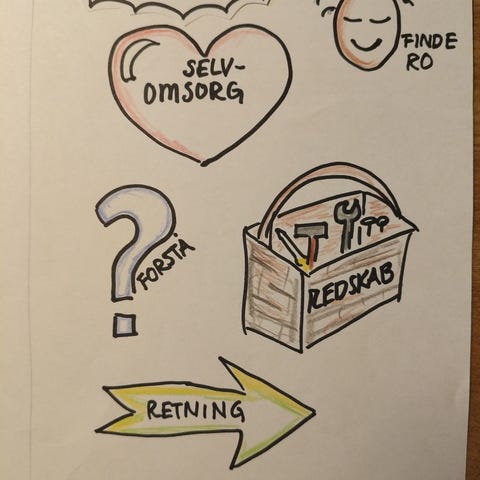 FINDE
RO
SELV-
OMSORG
FORSTÅ
REDSKAB
RETNING